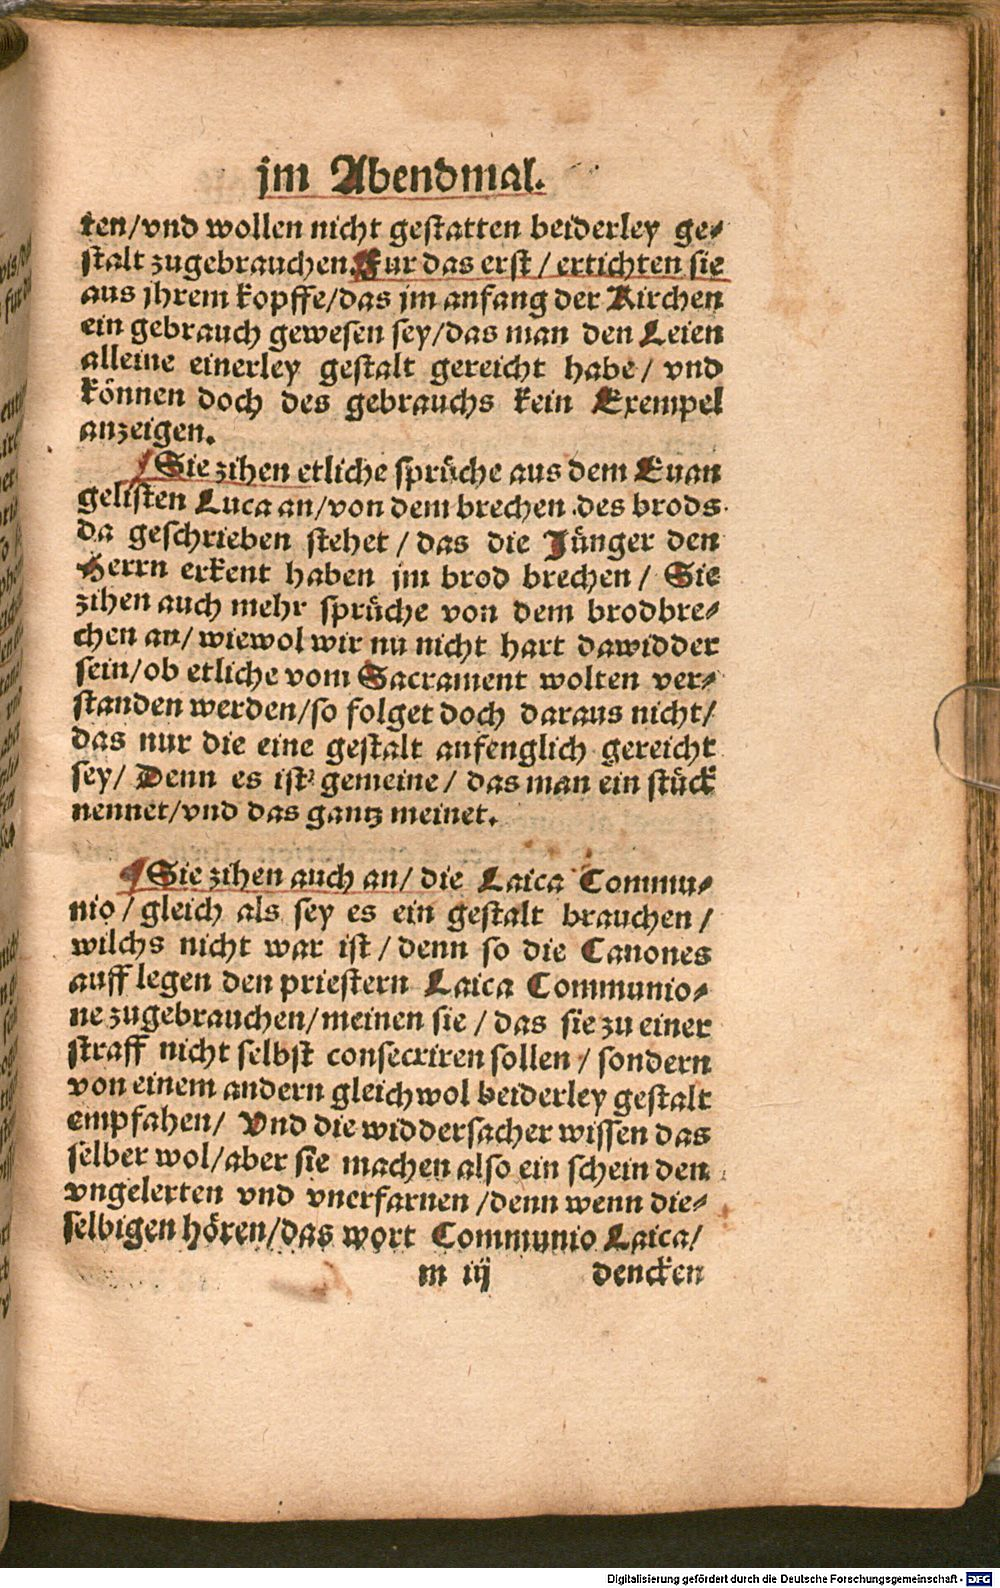 jm Abendmal.
ten/vnd wollen nicht gestatten beiderley ge-
stalt zugebrauchen. Fur das erst / ertichten sie
aus jhrem kopffe/das jm anfang der Kirchen
ein gebrauch gewesen sey/das man den Leien
alleine einerley gestalt gereicht habe/ vnd
können doch des gebrauchs kein Exempel
anzeigen.
Sie zihen etliche sprüche aus dem Euan
gelisten Luca an/von dem brechen des brods
da geschrieben stehet / das die Jünger den
Herrn erkent haben jm brod brechen/ Sie
zihen auch mehr sprüche von dem brodbre-
chen an/ wiewol wir nu nicht hart dawidder
sein/ob etliche vom Sacrament wolten ver-
standen werden/so folget doch daraus nicht/
das nur die eine gestalt anfenglich gereicht
sey/ Denn es ist gemeine/ das man ein stück
nennet/vnd das gantz meinet.
Sie zihen auch an/ die Laica Commu-
nio / gleich als sey es ein gestalt brauchen /
wilchs nicht war ist / denn so die Canones
auff legen den priestern Laica Communio-
ne zugebrauchen/meinen sie / das sie zu einer
straff nicht selbst consecriren sollen / sondern
von einem andern gleichwol beiderley gestalt
empfahen/ Vnd die widdersacher wissen das
selber wol/aber sie machen also ein schein den
vngelerten vnd vnerfarnen /denn wenn die-
selbigen hören/das wort Communio Laica/
m iij dencken
Digitalisierung gefördert durch die Deutsche Forschungsgemeinschaft - DFG